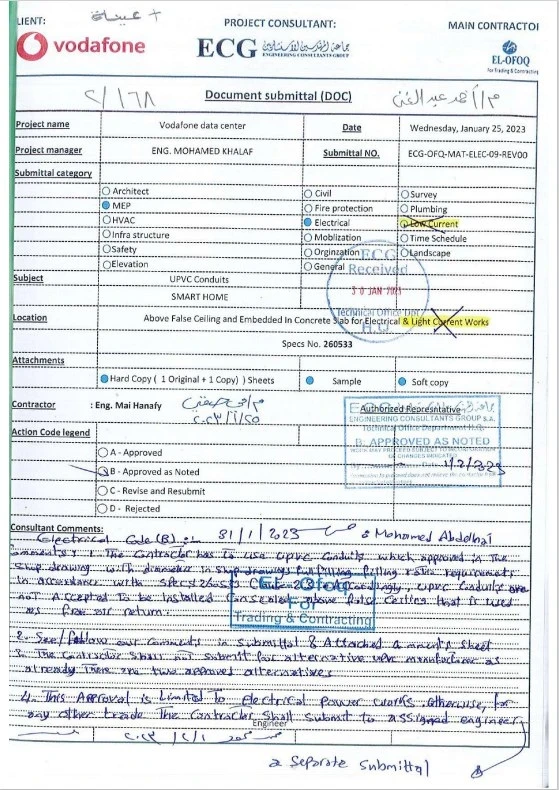 LIENT:
+ عينة
PROJECT CONSULTANT:
MAIN CONTRACTOI
vodafone
ECG
جماعة المهندسين الاستشاريين
ENGINEERING CONSULTANTS GROUP
EL-OFOQ
for Trading & Contracting
٢/١٦٨
Document submittal (DOC)
م/أحمد عبد الغني
Project name
Vodafone data center
Date
Wednesday, January 25, 2023
Project manager
ENG. MOHAMED KHALAF
Submittal NO.
ECG-OFQ-MAT-ELEC-09-REV00
Submittal category
Architect
Civil
Survey
MEP
Fire protection
Plumbing
HVAC
Electrical
Low Current
Infra structure
Moblization
Time Schedule
Safety
Orginzation
Landscape
Elevation
General
ECG
Received
30 JAN 2023
Technical Office Dpt.
H.Q.
Subject
UPVC Conduits
SMART HOME
Location
Above False Ceiling and Embedded In Concrete Slab for Electrical & Light Current Works
Specs No. 260533
Attachments
Hard Copy ( 1 Original + 1 Copy ) Sheets
Sample
Soft copy
Contractor
: Eng. Mai Hanafy
Authorized Represntative
ENGINEERING CONSULTANTS GROUP S.A.
Technical Office Department H.Q.
B. APPROVED AS NOTED
Action Code legend
A - Approved
B - Approved as Noted
C - Revise and Resubmit
D - Rejected
Consultant Comments:
Electrical Code (B) :- 31/1/2023 : Mohamed Abdelhai
Comments: 1. The Contractor has to use UPVC Conduits which approved in the
shop drawing with diameter in shop drawings fulfilling filling ratio requirements
in accordance with specs Accordingly, UPVC Conduits are
not Accepted to be installed Concealed above false Ceiling that is used
as free air return.
EL-Ofoq
For
Trading & Contracting
2. See/follow our comments in submittal & Attached comments sheet
3. The Contractor shall not submit for alternative upvc manufacturer as
already There are two approved alternatives
4. This Approval is Limited to Electrical power works. otherwise, for
any other trade The Contractor Shall submit to assigned engineer
Engineer
a separate submittal